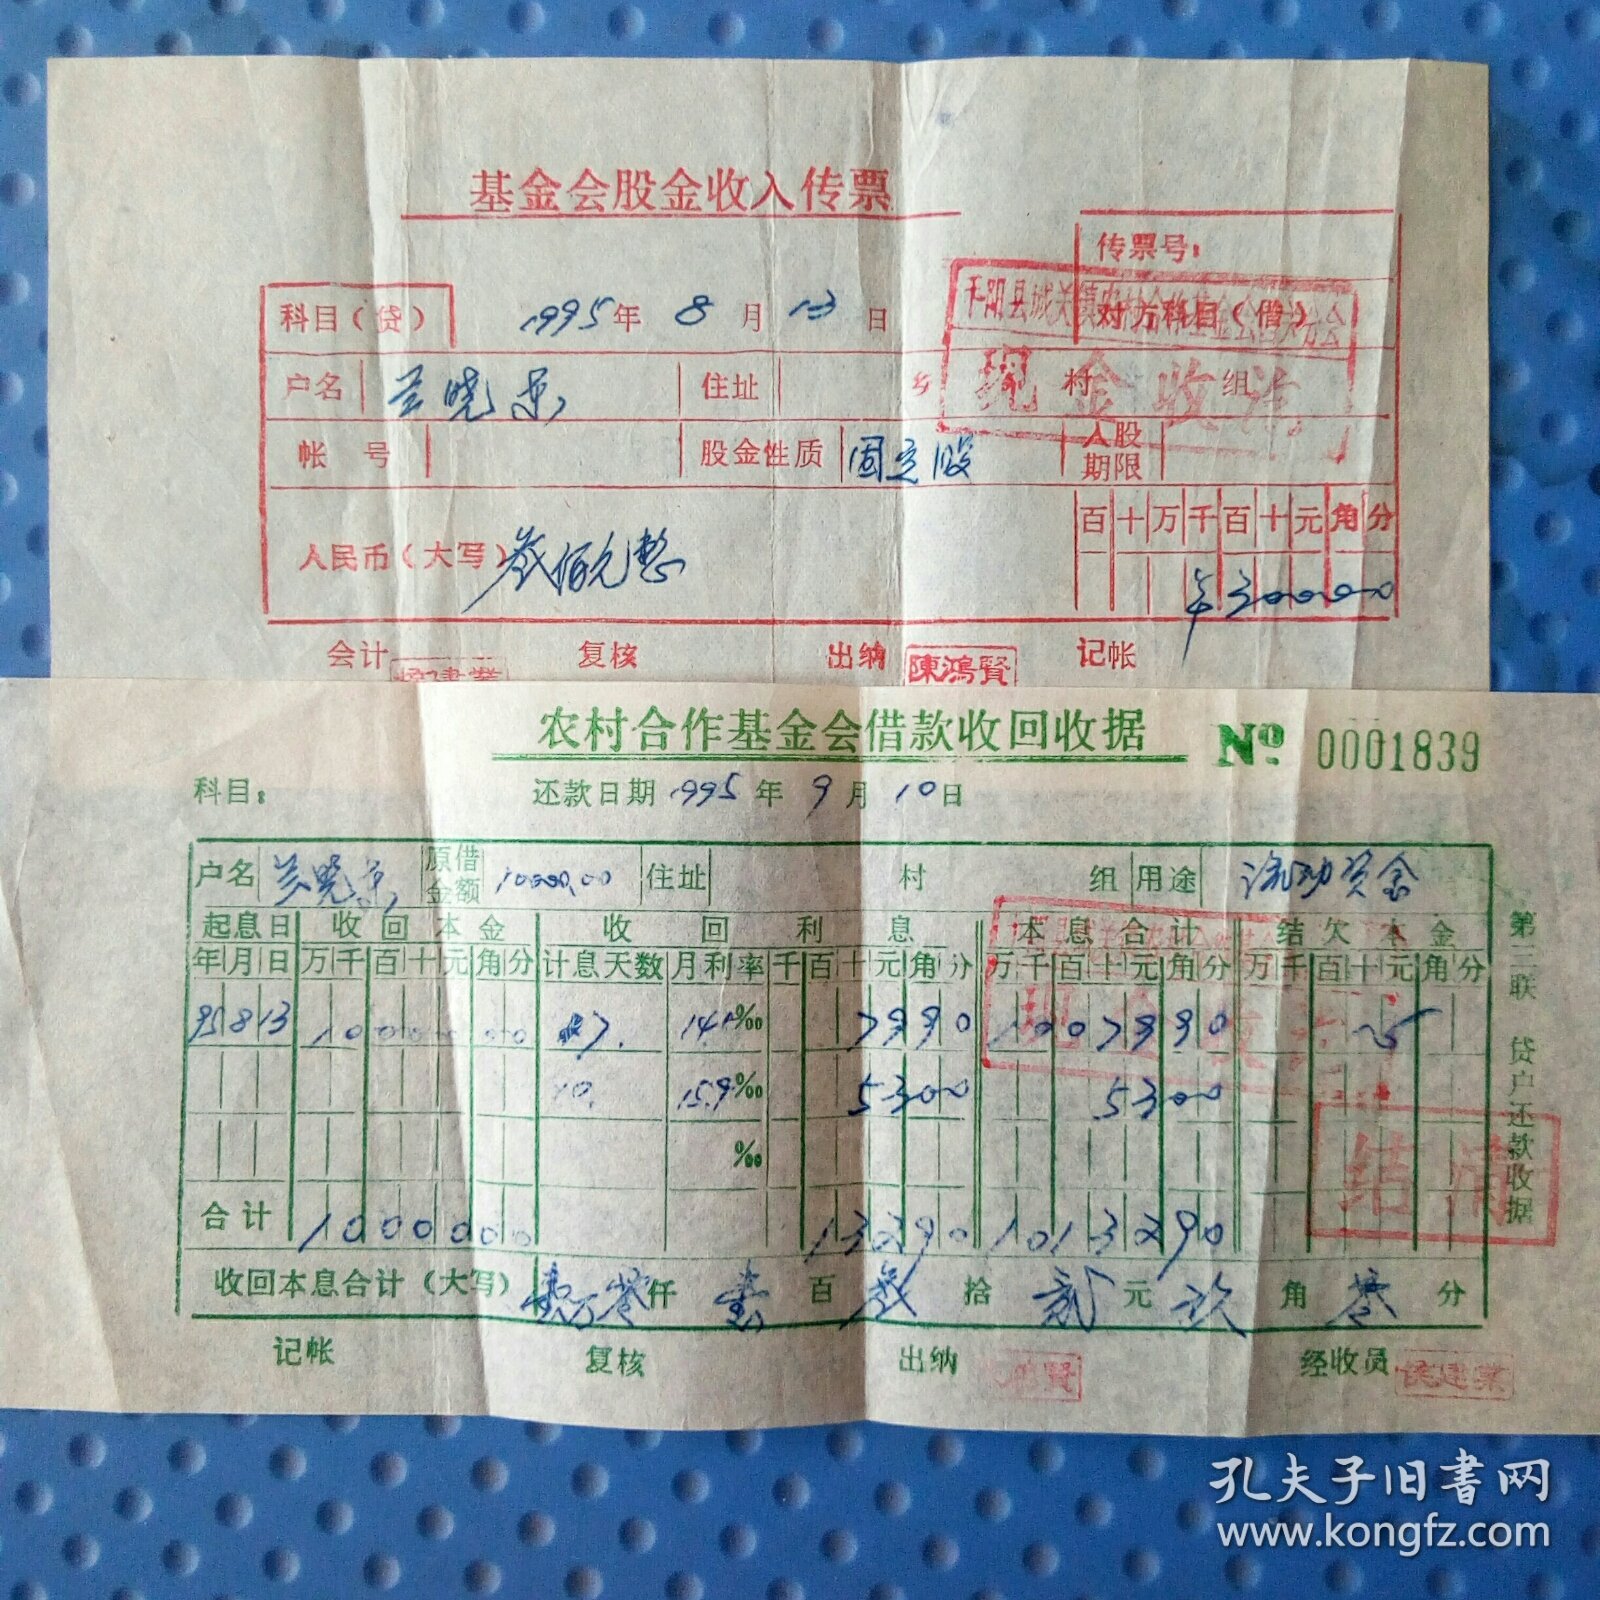 基金会股金收入传票
传票号：
科目（贷） 1995年 8月 13日 对方科目（借）
现金收讫
户名 兰晓东 住址 乡 村 组
帐号 股金性质 固定股 入股期限
百十万千百十元角分
人民币（大写） 叁佰元整 ¥30000
会计 复核 出纳 陳鴻賢 记帐
农村合作基金会借款收回收据 № 0001839
科目： 还款日期 1995年 9月 10日
户名 兰晓东 原借金额 10000.00 住址 村 组 用途 流动资金
起息日 收回本金 收回利息 本息合计 结欠本金
年月日 万千百十元角分 计息天数 月利率 千百十元角分 万千百十元角分 万千百十元角分
95 8 13 1000000 17. 14.1‰ 7990 1007990
10. 15.9‰ 5300 5300
‰
合计 1000000 13290 1013290
收回本息合计（大写） 壹万零仟壹百叁拾贰元玖角零分
记帐 复核 出纳 经收员
第二联 贷户还款收据
结清
孔夫子旧书网
www.kongfz.com